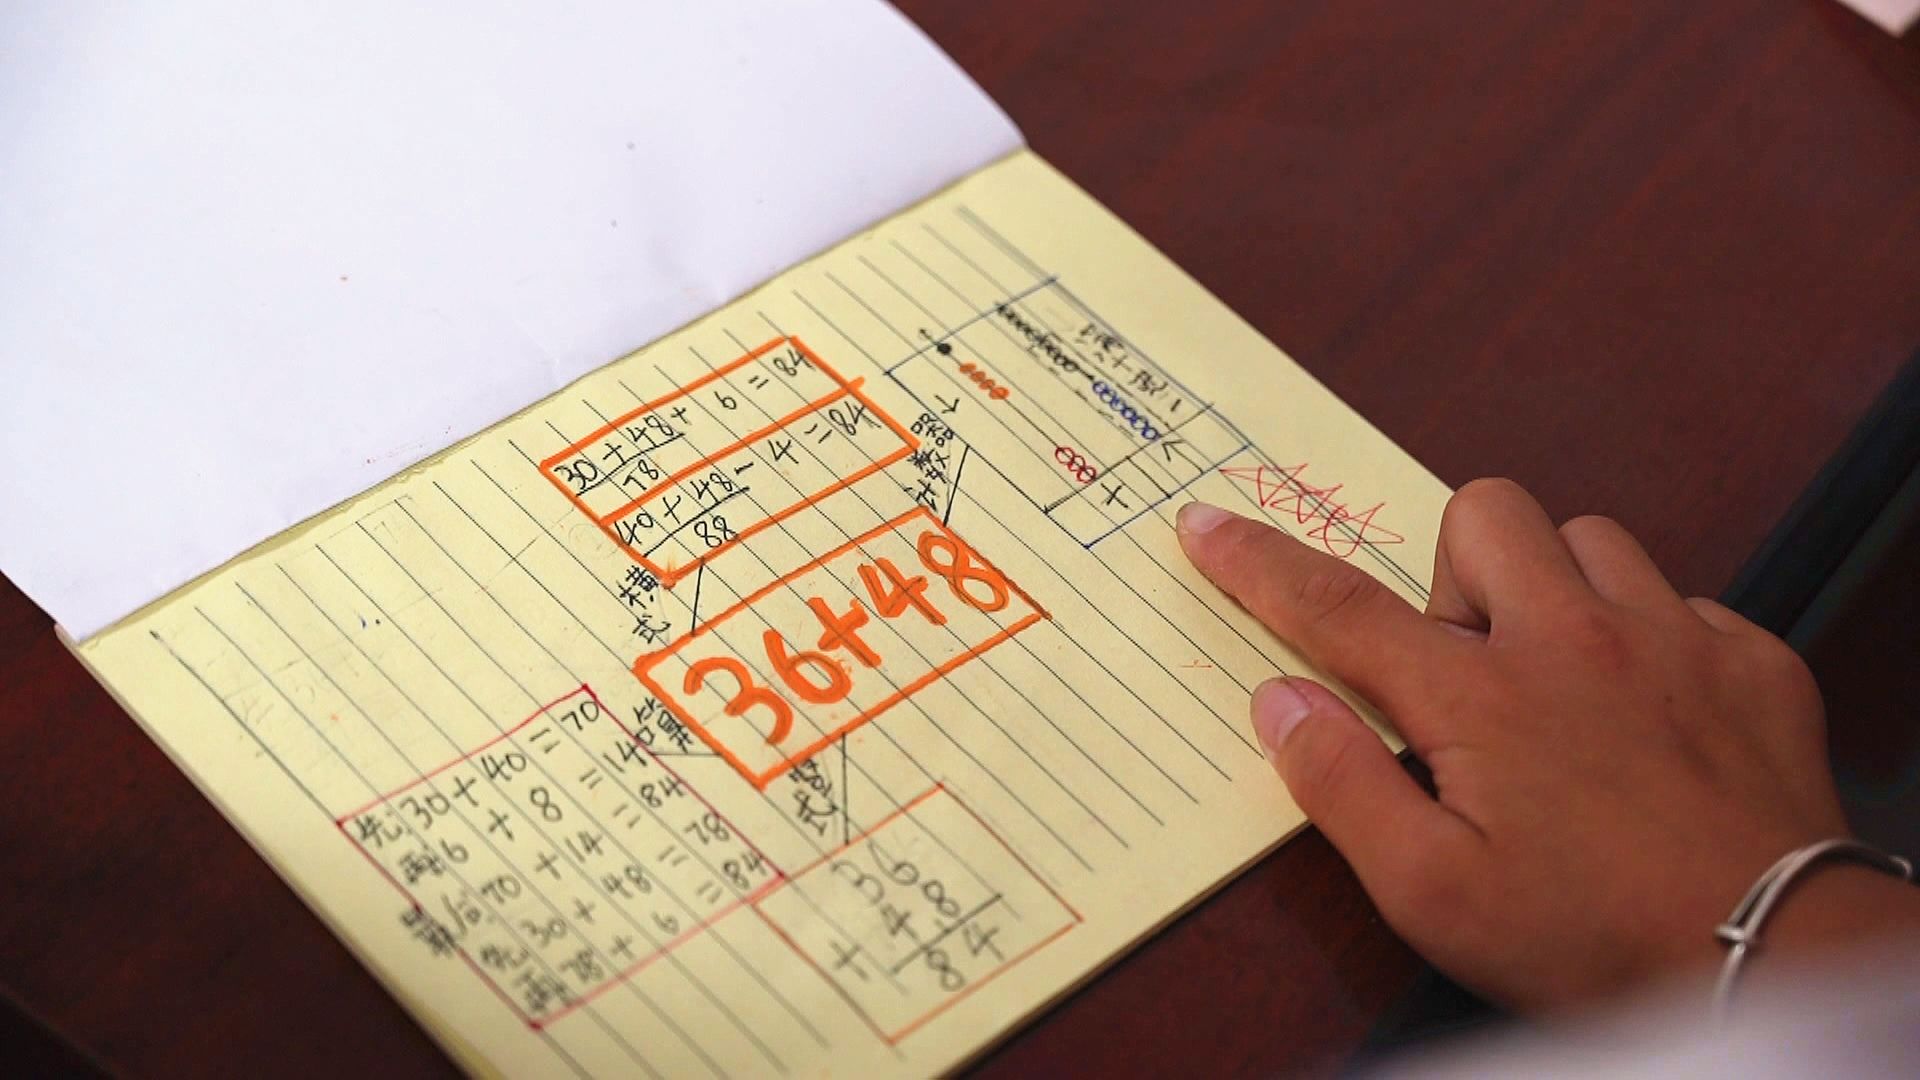 30+48+6=84
78
40+48-4=84
88
横式
36+48
计数器
满十进1
个
十
口算
先30+40=70
再6+8=14
最后70+14=84
先30+48=78
再78+6=84
竖式
36
+48
84